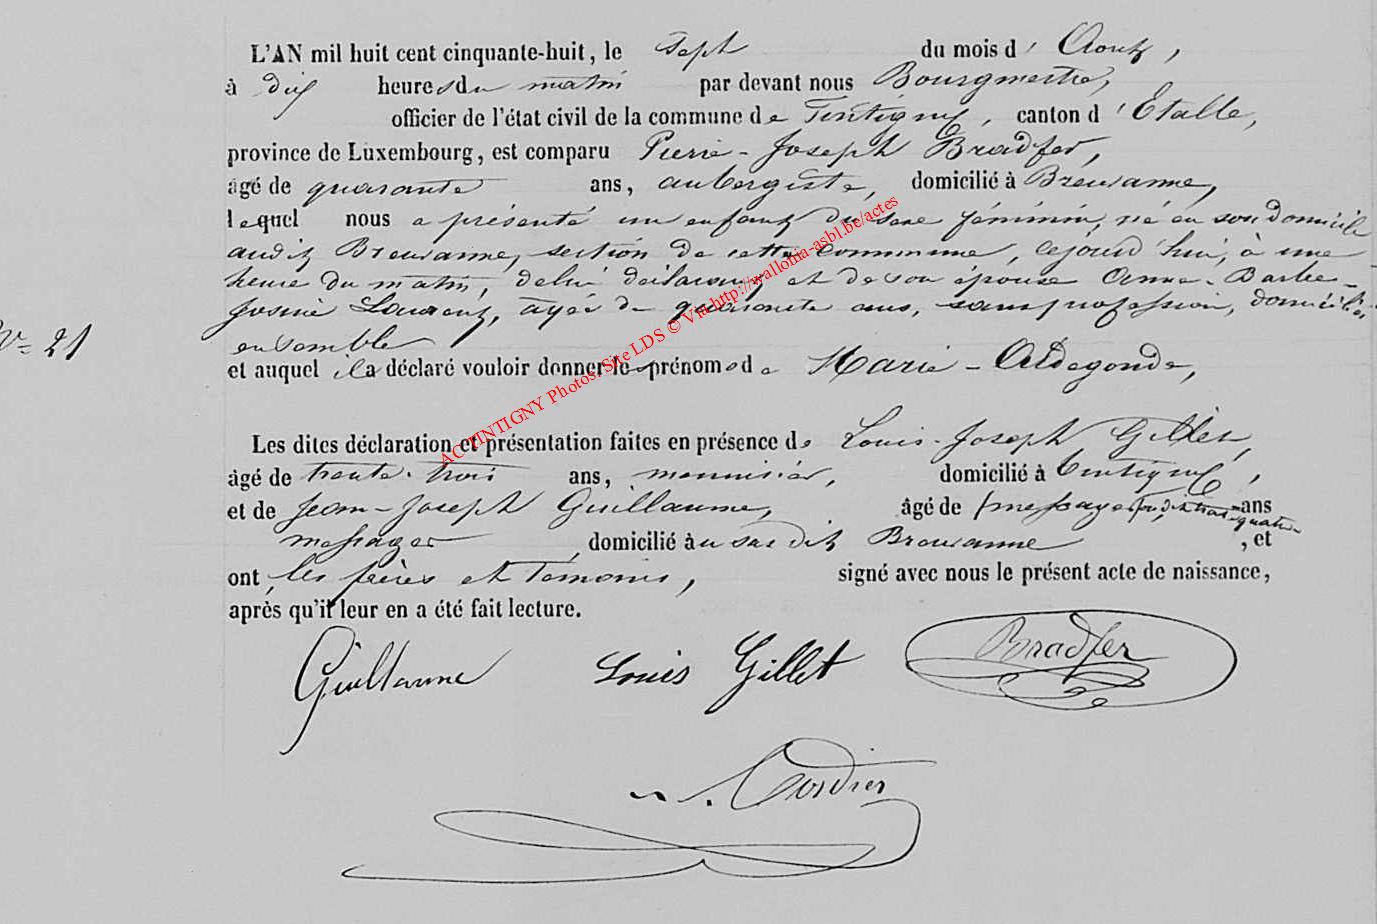 L'AN mil huit cent cinquante-huit, le Sept du mois d' Août,
à dix heures du matin par devant nous Bourgmestre,
officier de l'état civil de la commune de Tintigny, canton d'Etalle,
province de Luxembourg, est comparu Pierre-Joseph Bradfer,
âgé de quarante ans, aubergiste, domicilié à Breuvanne,
lequel nous a présenté un enfant du sexe féminin, né en son domicile
audit Breuvanne, section de cette commune, cejourd'hui, à une
heure du matin, de lui déclarant et de son épouse Anne-Barbe-
Josine Laurent, agée de quarante ans, sans profession, domiciliés
ensemble
N° 21
et auquel il a déclaré vouloir donner les prénoms de Marie-Aldegonde,
Les dites déclaration et présentation faites en présence de Louis-Joseph Gillet,
âgé de trente-trois ans, menuisier, domicilié à Tintigny,
et de Jean-Joseph Guillaume, âgé de ans
messager, domicilié à u sus dit Breuvanne, et
ont, les pères et témoins, signé avec nous le présent acte de naissance,
après qu'il leur en a été fait lecture.
Guillaume Louis Gillet Bradfer
Cordier
ACTINTIGNY Photos. Site LDS © Via http://wallonia-asbl.be/actes